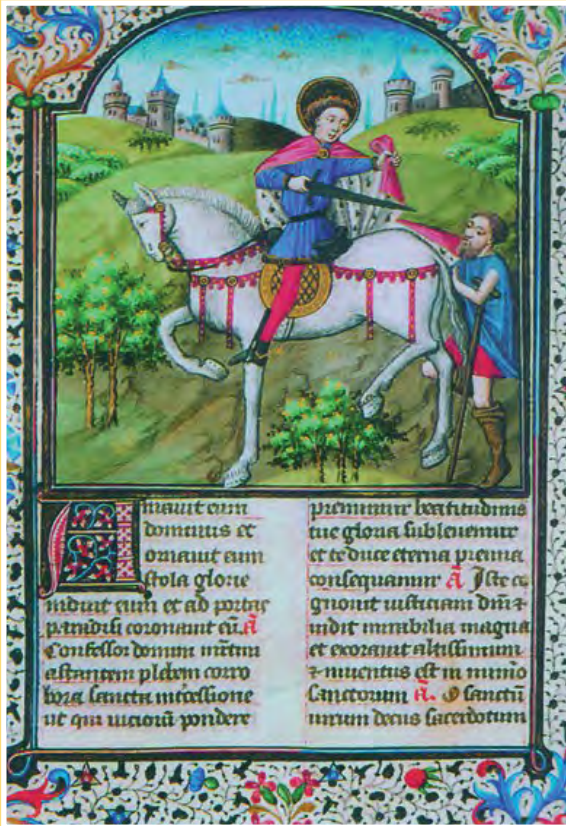 Amauit eum
dominus et
ornauit eum
stola glorie
induit eum et ad portas
paradisi coronauit eū. A
Confessor domini
astantem plebem corro
bora sancta intcessione
ut qui uiciorū pondere
premimur beatitudinis
tue gloria subleuemur
et te duce eterna premia
consequamur A Iste co
gnouit iusticiam
uidit mirabilia magna
et exorauit altissimum
& inuentus est in numo
sanctorum A. O sanctū
uirum decus sacerdotum